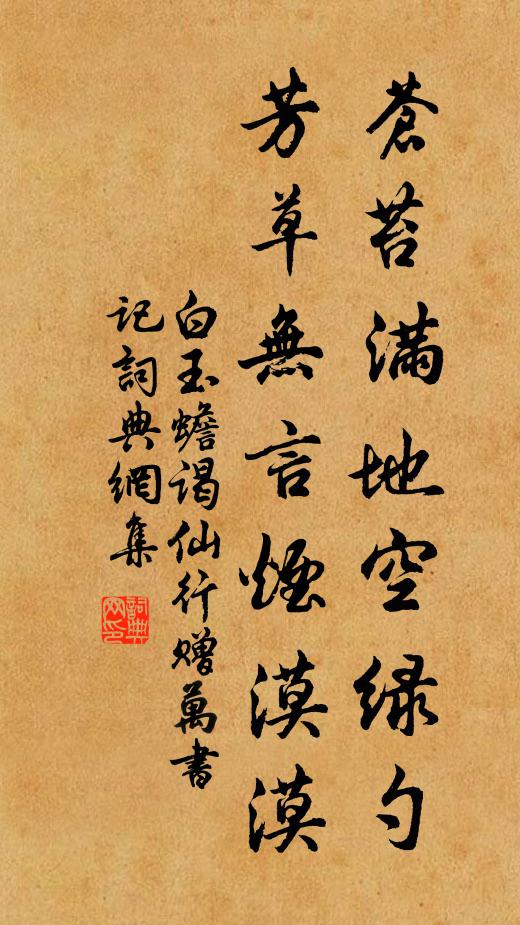 蒼苔滿地空緑勺
芳草無言煙漠漠
白玉蟾謁仙行赠萬書
記詞典網集
詞典网印